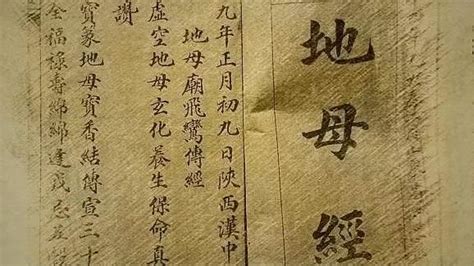 地母經
九年正月初九日陝西漢中
地母廟飛鸞傳經
虛空地母玄化養生保命真
讚
寶象地母寶香結傳宣三十
全福祿壽綿綿逢戊忌